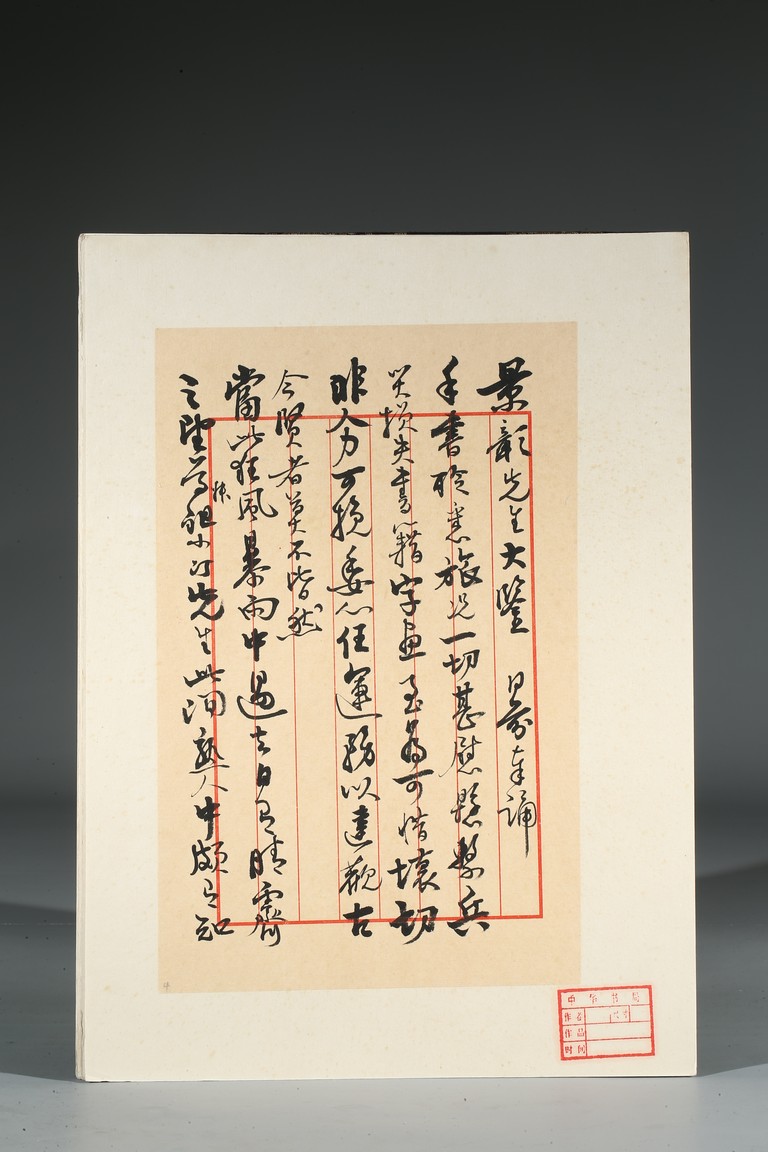 景龍先生大鑒 日前奉誦
手書聆悉旅況一切甚慰懸繫兵
災損失書籍字畫至為可惜壞劫
非人力可挽委心任運務以達觀古
今賢者莫不皆然
當此狂風暴雨中過去自有晴霽
之望 先生此間熟人中頗有知
中华书局
作者
作品
时间